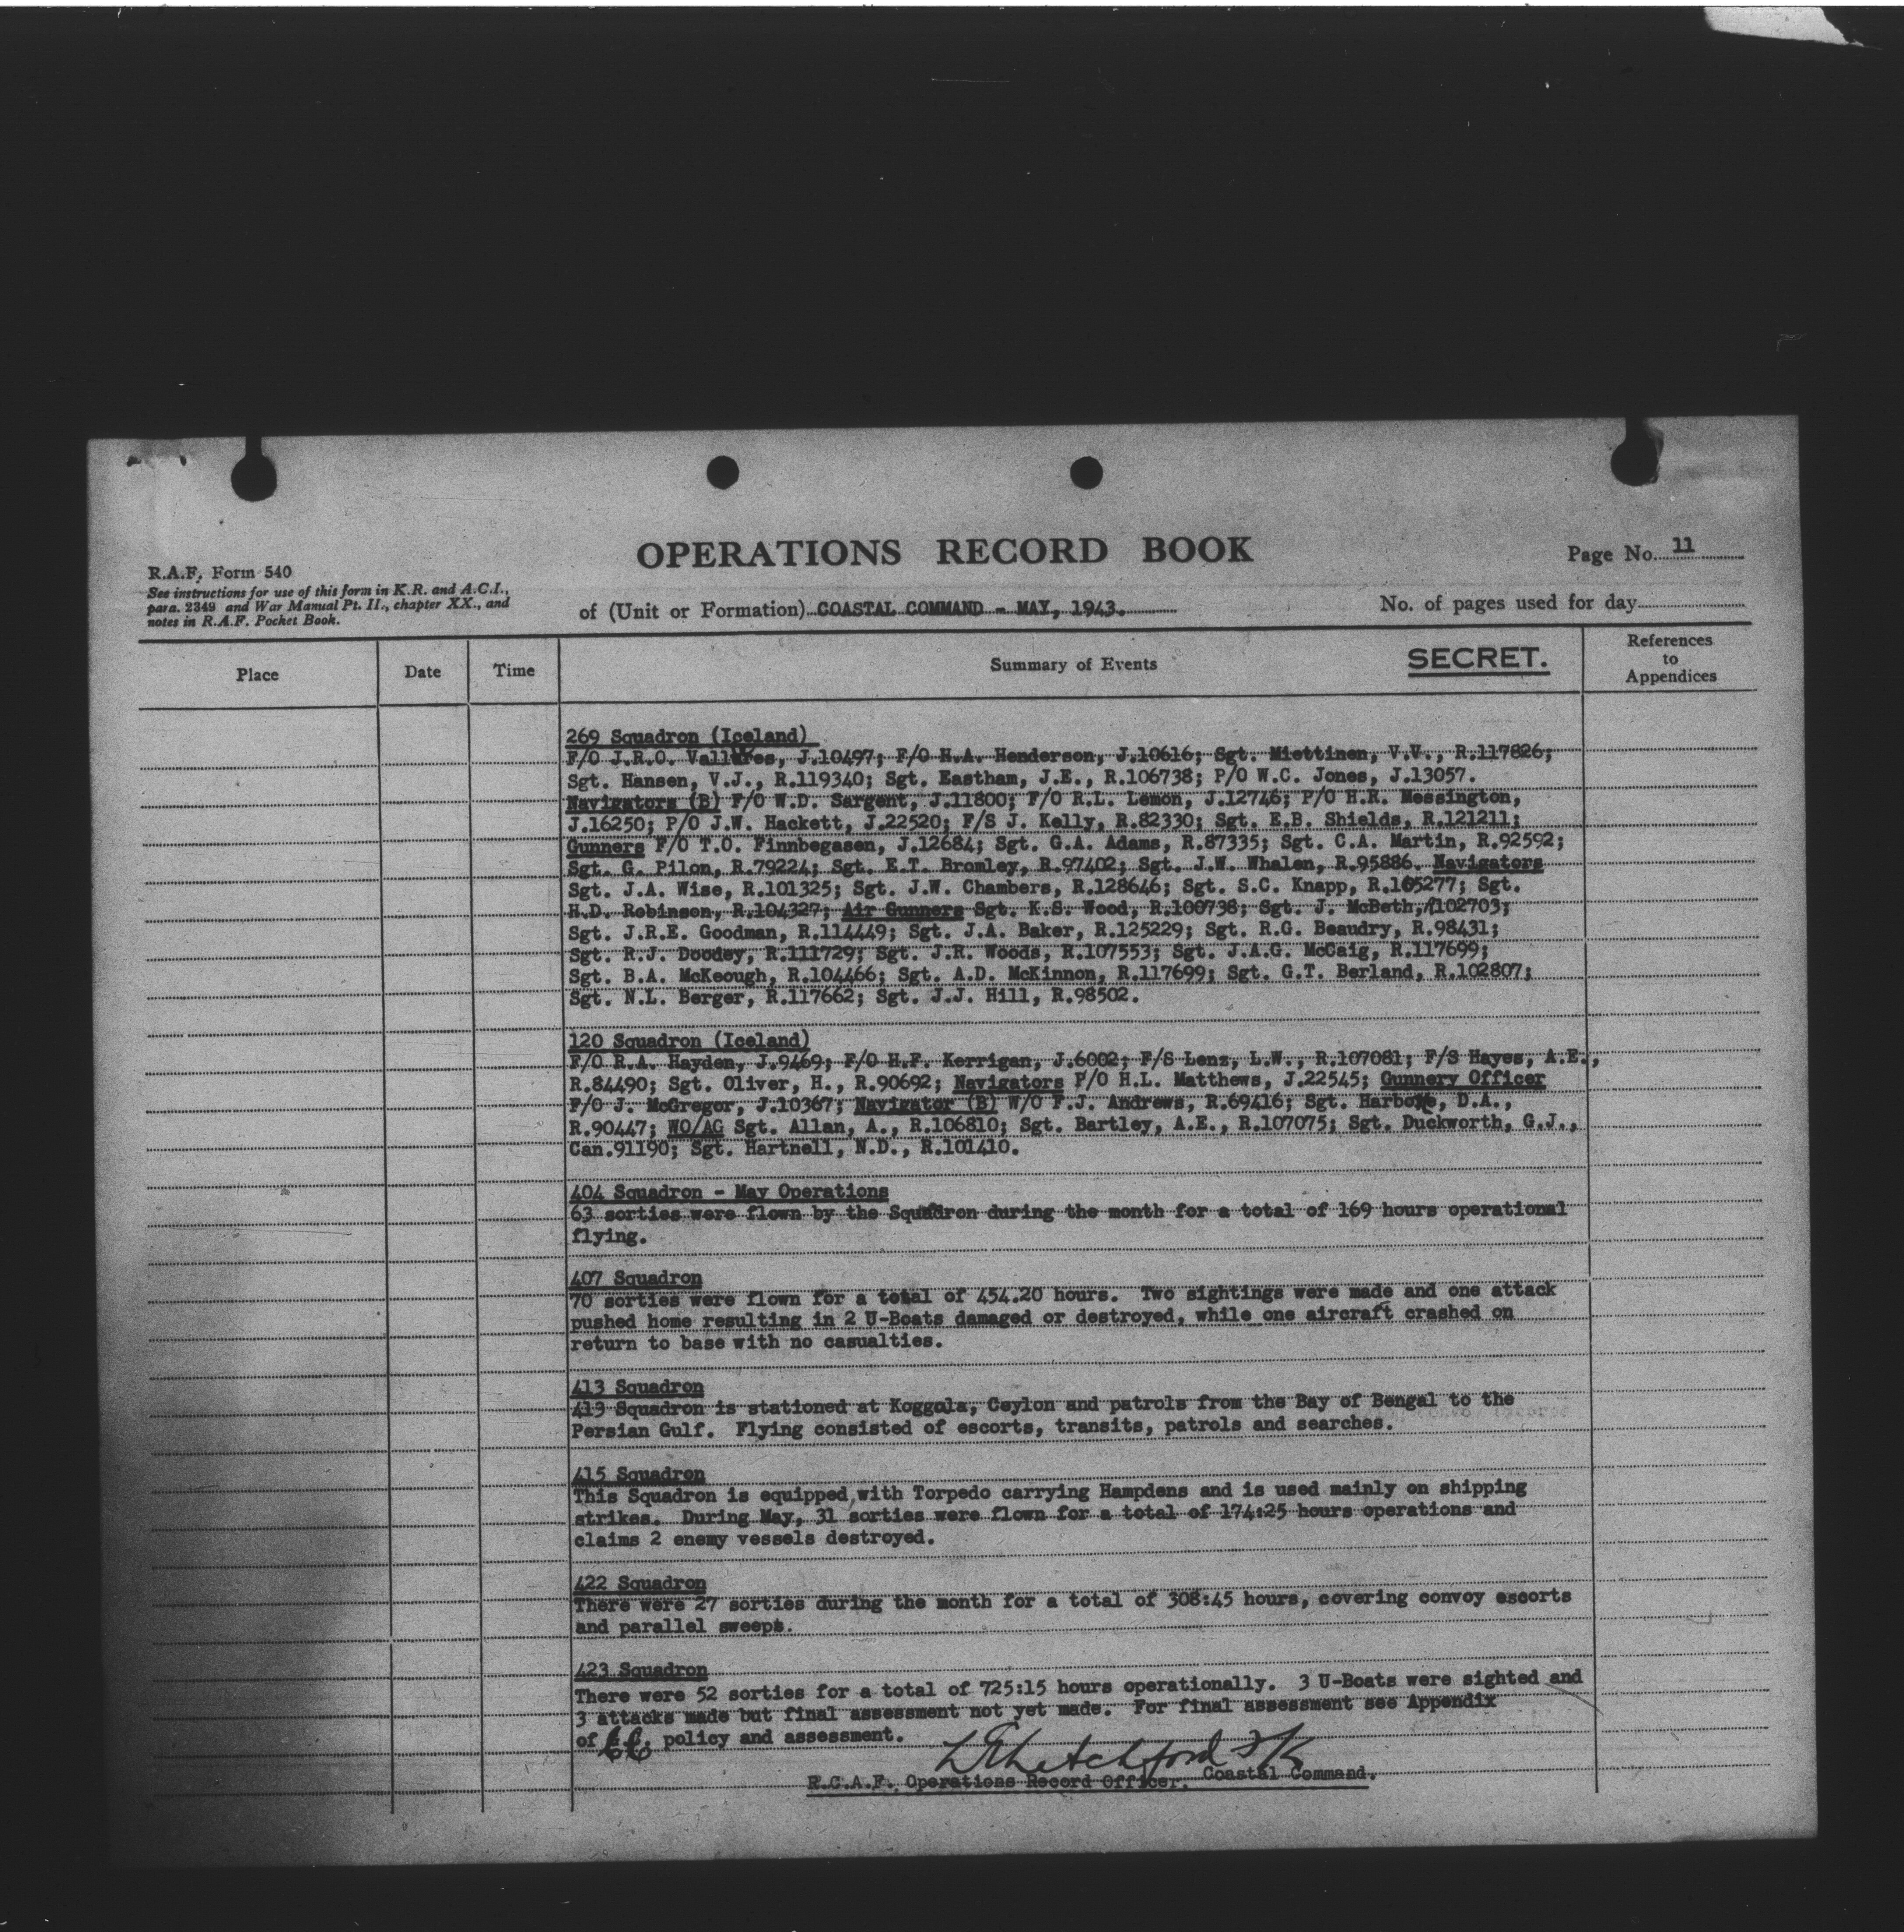 OPERATIONS RECORD BOOK
Page No. 11
R.A.F. Form 540
See instructions for use of this form in K.R. and A.C.I.,
para. 2349 and War Manual Pt. II., chapter XX., and
notes in R.A.F. Pocket Book.
of (Unit or Formation) COASTAL COMMAND - MAY, 1943.
No. of pages used for day
Place
Date
Time
Summary of Events
SECRET.
References
to
Appendices
269 Squadron (Iceland)
F/O J.R.O. J.10497; F/O H.A. Henderson, J.10616; Sgt. Miettinen, V.V., R.117826;
Sgt. Hansen, V.J., R.119340; Sgt. Eastham, J.E., R.106738; P/O W.C. Jones, J.13057.
Navigators (B) F/O W.D. Sargent, J.11800; F/O R.L. Lemon, J.12746; P/O H.R. Messington,
J.16250; P/O J.W. Hackett, J.22520; F/S J. Kelly, R.82330; Sgt. E.B. Shields, R.121211;
Gunners F/O T.O. Finnbegasen, J.12684; Sgt. G.A. Adams, R.87335; Sgt. C.A. Martin, R.92592;
Sgt. G. Pilon, R.79224; Sgt. E.T. Bromley, R.97402; Sgt. J.W. Whalen, R.95886. Navigators
Sgt. J.A. Wise, R.101325; Sgt. J.W. Chambers, R.128646; Sgt. S.C. Knapp, R.105277; Sgt.
H.D. Robinson, R.104327; Air Gunners Sgt. K.S. Wood, R.100738; Sgt. J. McBeth, R102703;
Sgt. J.R.E. Goodman, R.114449; Sgt. J.A. Baker, R.125229; Sgt. R.G. Beaudry, R.98431;
Sgt. R.J. Doodey, R.111729; Sgt. J.R. Woods, R.107553; Sgt. J.A.G. McCaig, R.117699;
Sgt. B.A. McKeough, R.104466; Sgt. A.D. McKinnon, R.117699; Sgt. G.T. Berland, R.102807;
Sgt. N.L. Berger, R.117662; Sgt. J.J. Hill, R.98502.
120 Squadron (Iceland)
F/O R.A. Hayden, J.9469; F/O H.F. Kerrigan, J.6002; F/S Lenz, L.W., R.107081; F/S Hayes, A.E.,
R.84490; Sgt. Oliver, H., R.90692; Navigators P/O H.L. Matthews, J.22545; Gunnery Officer
F/O J. McGregor, J.10367; Navigator (B) W/O F.J. Andrews, R.69416; Sgt. D.A.,
R.90447; WO/AG Sgt. Allan, A., R.106810; Sgt. Bartley, A.E., R.107075; Sgt. Duckworth, G.J.,
Can.91190; Sgt. Hartnell, N.D., R.101410.
404 Squadron - May Operations
63 sorties were flown by the Squadron during the month for a total of 169 hours operational
flying.
407 Squadron
70 sorties were flown for a total of 454.20 hours. Two sightings were made and one attack
pushed home resulting in 2 U-Boats damaged or destroyed, while one aircraft crashed on
return to base with no casualties.
413 Squadron
413 Squadron is stationed at Koggala, Ceylon and patrols from the Bay of Bengal to the
Persian Gulf. Flying consisted of escorts, transits, patrols and searches.
415 Squadron
This Squadron is equipped with Torpedo carrying Hampdens and is used mainly on shipping
strikes. During May, 31 sorties were flown for a total of 174:25 hours operations and
claims 2 enemy vessels destroyed.
422 Squadron
There were 27 sorties during the month for a total of 308:45 hours, covering convoy escorts
and parallel sweeps.
423 Squadron
There were 52 sorties for a total of 725:15 hours operationally. 3 U-Boats were sighted and
3 attacks made but final assessment not yet made. For final assessment see Appendix
of policy and assessment.
R.C.A.F. Operations Record Officer, Coastal Command.